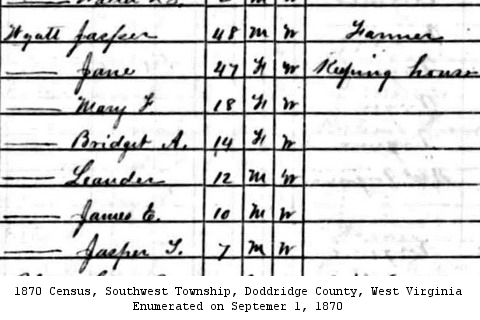 Wyatt Jasper 48 M W Farmer
— Jane 47 F W Keeping house
— Mary F 18 F W
— Bridget A. 14 F W
— Leander 12 M W
— James E. 10 M W
— Jasper T. 7 M W
1870 Census, Southwest Township, Doddridge County, West Virginia
Enumerated on Septemer 1, 1870